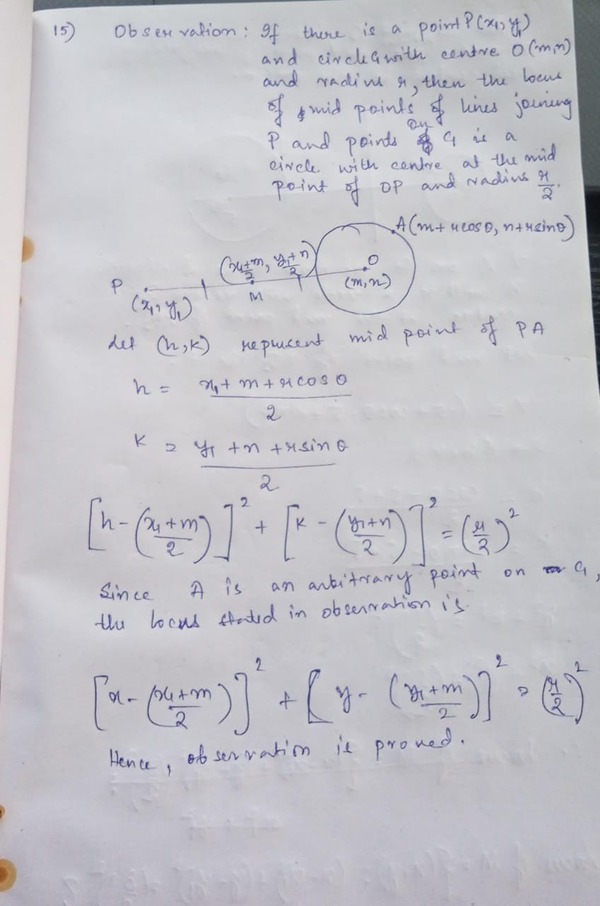 15) Observation: If there is a point P(x₁, y₁)
and circle C₁ with centre O(m,n)
and radius r, then the locus
of mid points of lines joining
P and points on C₁ is a
circle with centre at the mid
point of OP and radius r/2.
A(m+rcosθ, n+rsinθ)
((x₁+m)/2, (y₁+n)/2)
O
P
M
(m,n)
(x₁, y₁)
Let (h,k) represent mid point of PA
h = (x₁+m+rcosθ)/2
k = (y₁+n+rsinθ)/2
[h-((x₁+m)/2)]² + [k-((y₁+n)/2)]² = (r/2)²
Since A is an arbitrary point on C₁,
the locus stated in observation is
[x-((x₁+m)/2)]² + [y-((y₁+m)/2)]² = (r/2)²
Hence, observation is proved.